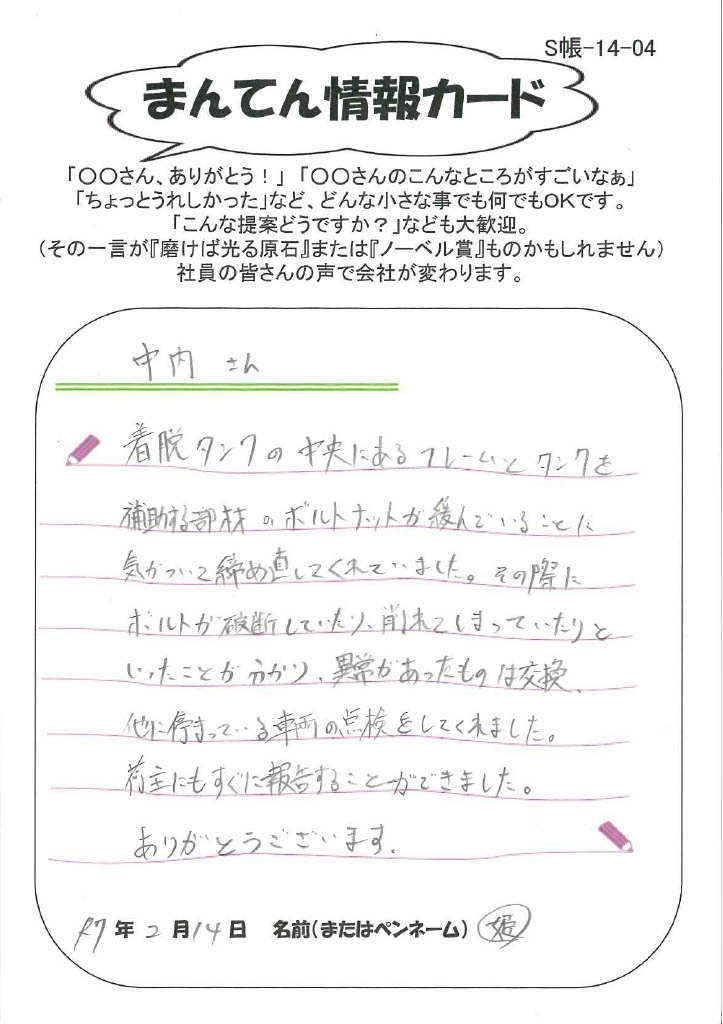 S帳-14-04
まんてん情報カード
「〇〇さん、ありがとう！」「〇〇さんのこんなところがすごいなぁ」
「ちょっとうれしかった」など、どんな小さな事でも何でもOKです。
「こんな提案どうですか？」なども大歓迎。
（その一言が『磨けば光る原石』または『ノーベル賞』ものかもしれません）
社員の皆さんの声で会社が変わります。
中内 さん
着脱タンクの中央にあるフレームとタンクを
補助する部材のボルトナットが緩んでいることに
気がついて締め直してくれていました。その際に
ボルトが破断していたり、削れてしまっていたりと
いったことが分かり、異常があったものは交換、
他に停まっている車両の点検をしてくれました。
荷主にもすぐに報告することができました。
ありがとうございます.
R7年2月14日 名前（またはペンネーム） 姫